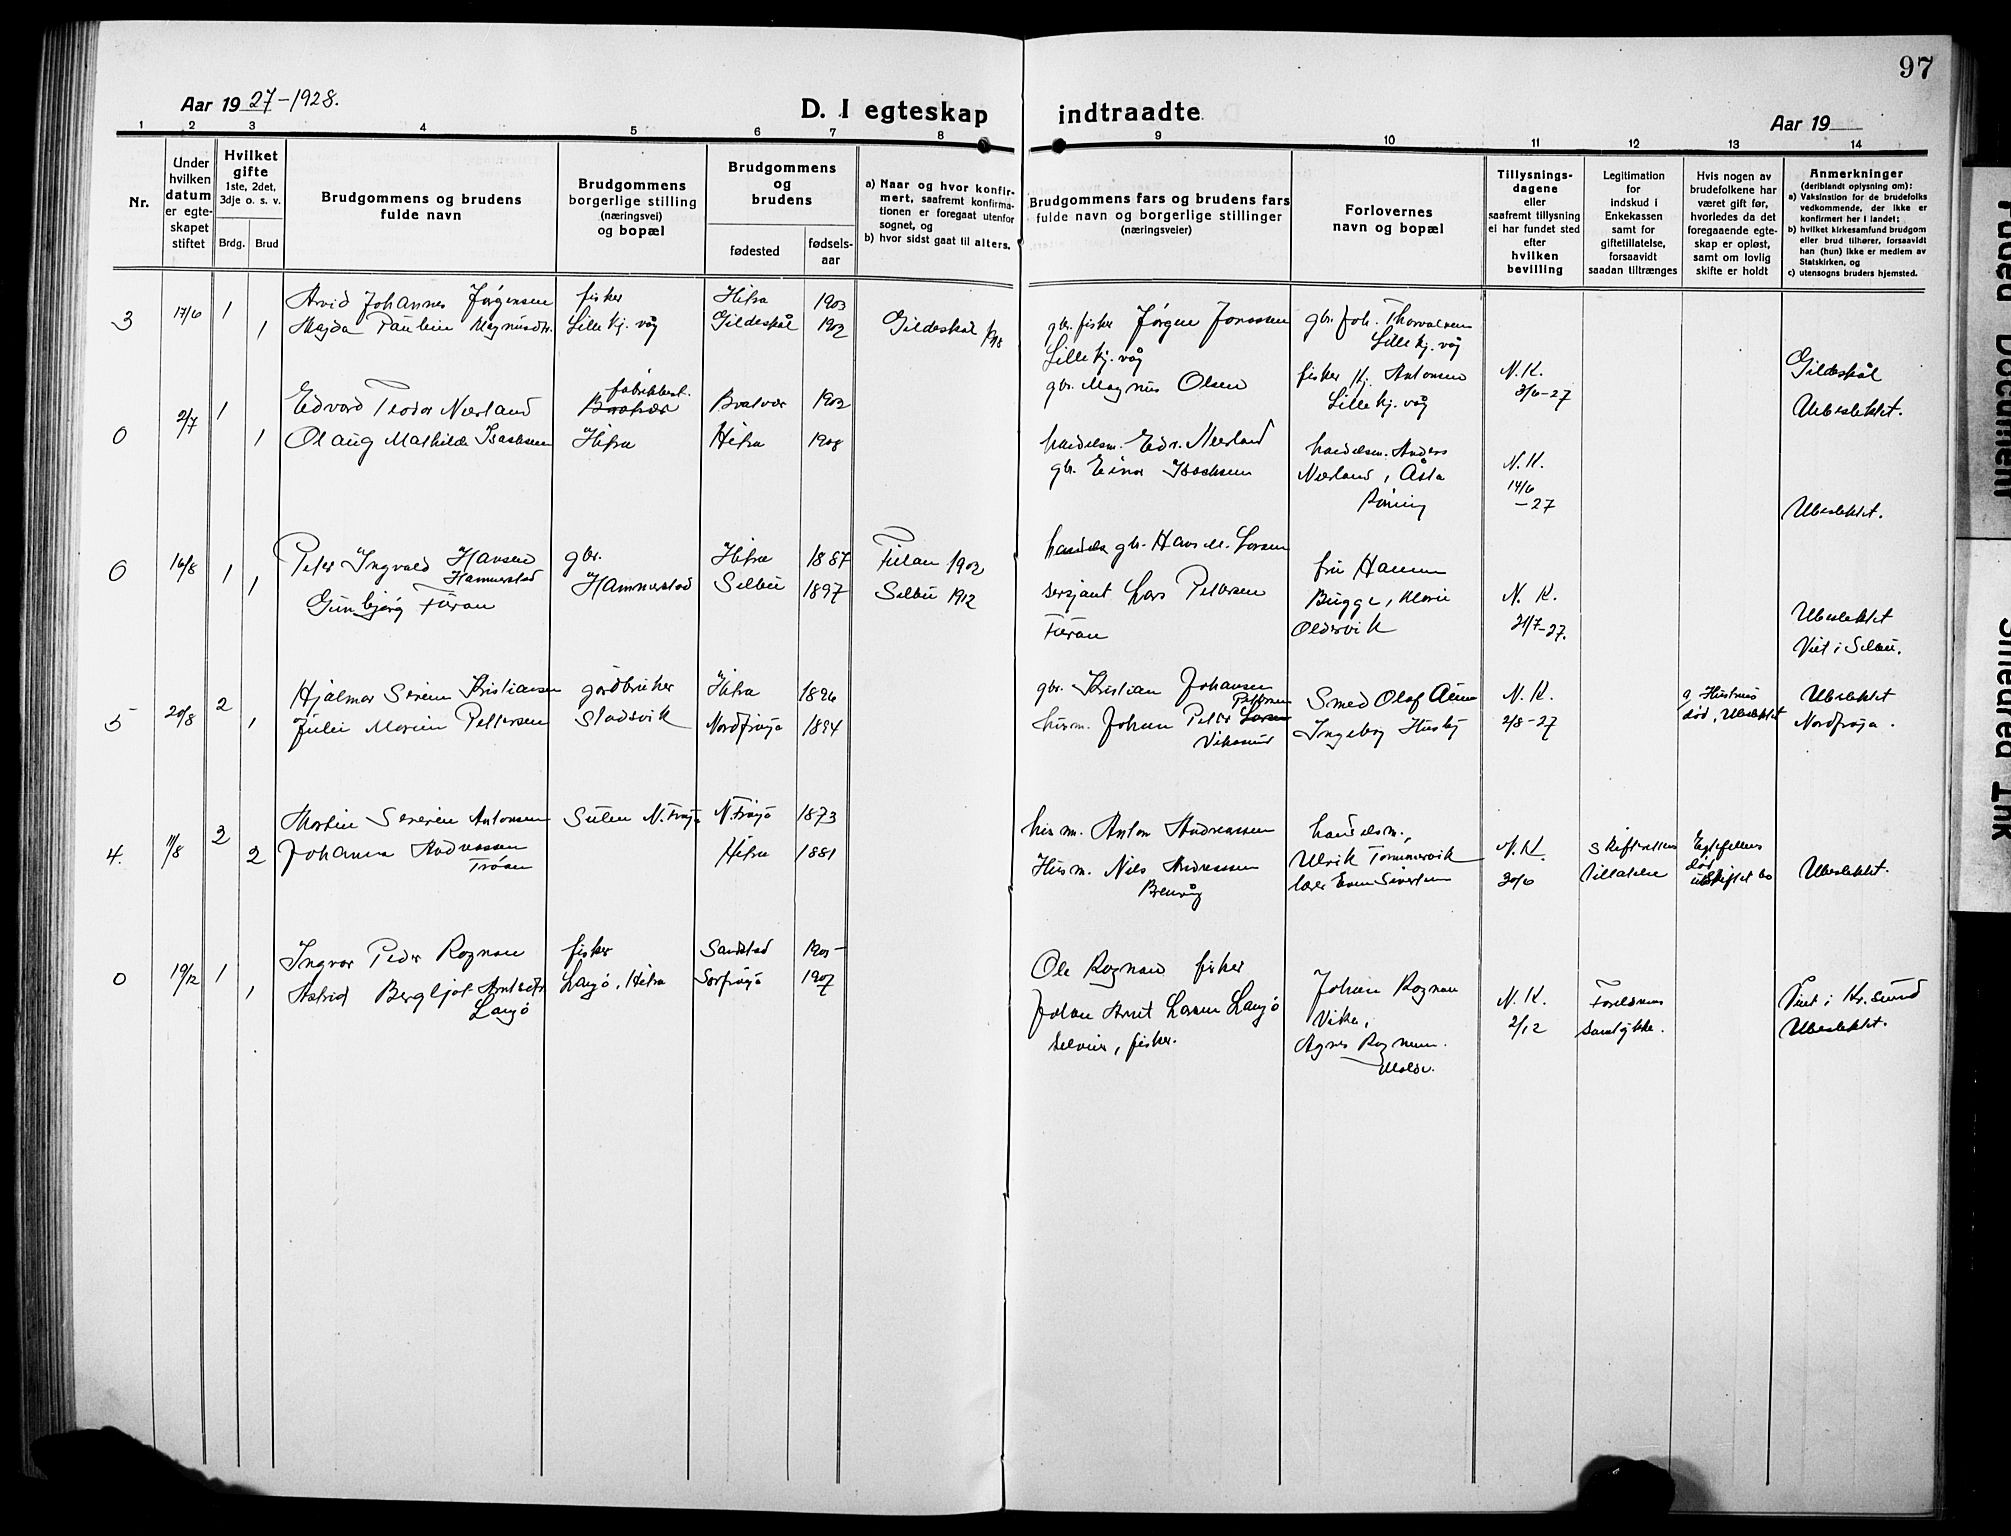 97
Aar 1927-1928.
D. I egteskap indtraadte
Aar 19
1 2 3 4 5 6 7 8 9 10 11 12 13 14
Nr.
Under
hvilken
datum
er egte-
skapet
stiftet
Hvilket
gifte
1ste, 2det,
3dje o. s. v.
Brdg. Brud
Brudgommens og brudens
fulde navn
Brudgommens
borgerlige stilling
(næringsvei)
og bopæl
Brudgommens
og
brudens
fødested
fødsels-
aar
a) Naar og hvor konfir-
mert, saafremt konfirma-
tionen er foregaat utenfor
sognet, og
b) hvor sidst gaat til alters.
Brudgommens fars og brudens fars
fulde navn og borgerlige stillinger
(næringsveier)
Forlovernes
navn og bopæl
Tillysnings-
dagene
eller
saafremt tillysning
ei har fundet sted
efter
hvilken
bevilling
Legitimation
for
indskud i
Enkekassen
samt for
giftetillatelse,
forsaavidt
saadan tiltrænges
Hvis nogen av
brudefolkene har
været gift før,
hvorledes da det
foregaaende egte-
skap er opløst,
samt om lovlig
skifte er holdt
Anmerkninger
(deriblandt oplysning om):
a) Vaksination for de brudefolks
vedkommende, der ikke er
konfirmert her i landet;
b) hvilket kirkesamfund brudgom
eller brud tilhører, forsaavidt
han (hun) ikke er medlem av
Statskirken, og
c) utensogns bruders hjemsted.
3 17/6 1 1
Arvid Johannes Jørgensen
Magda Pauline Magnusdtr.
fisker
Lille Kj. våg
Hitra 1903
Gildeskål 1902
Gildeskål
gbr. fisker Jørgen Jonassen
Lille Kj. våg
gbr. Magnus Olsen
gbr. Joh. Thorvaldsen
Lille Kj. våg
fisker Kj. Antonsen
Lille Kj. våg
N. K.
3/6-27
Gildeskål
Ubeslektet.
0 2/7 1 1
Edvard Teodor Nærland
Olaug Mathilde Isachsen
fabrikkbest.
Hitra
Bratvær 1902
Hitra 1908
handelsm. Edv. Nærland
gbr. Einar Isachsen
handelsm. Anders
Nærland, Åsta
Røning
N. K.
14/6
-27
Ubeslektet.
0 16/8 1 1
Peter Ingvald Hansen
Hammerstad
Gunbjørg Furan
gbr.
Hammerstad
Hitra 1887
Selbu 1897
Fillan 1902
Selbu 1912
gbr. Hans M. Larsen
sersjant Lars Petersen
Furan
fru Hanna
Bugge, Marie
Oldervik
N. K.
21/7-27.
Ubeslektet
Viet i Selbu.
5 20/8 2 1
Hjalmar Severin Kristiansen
Julie Marie Pettersen
gårdbruker
Stadsvik
Hitra 1896
Nordfrøya 1894
gbr. Kristian Johansen
husm. Johan Peter Larsen Pettersen
Smed Olaf Aune
Ingeborg Husby
N. K.
2/8-27
g. Hustrus
død, Ubeslektet
Ubeslektet
Nordfrøya.
4. 11/8 2 2
Martin Severin Antonsen
Johanna Andreassen
Trøen
Sulen N. Frøya
N. Frøya 1873
Hitra 1881
husm. Anton Andreassen
Husm. Nils Andreassen
handelsm.
Ulrik Tømmervik
lærer Even Sivertsen
N. K.
30/6
Skifterettens
tillatelse
Egtefellens
død
uskiftet bo
Ubeslektet.
0 19/12 1 1
Ingvar Peder Rognan
Astrid Bergljot Arntsdtr.
Langø
fisker
Langø, Hitra
Sandstad 1905
Sørfrøya 1907
Ole Rognan fisker
Johan Arnt Larsen Langø
selveier, fisker.
Johan Rognan
Vika,
Agnes Rognan.
Molde.
N. K.
2/12
Foreldrenes
samtykke.
Viet i Kr. sund
Ubeslektet.
Faded Document
Smeared Ink